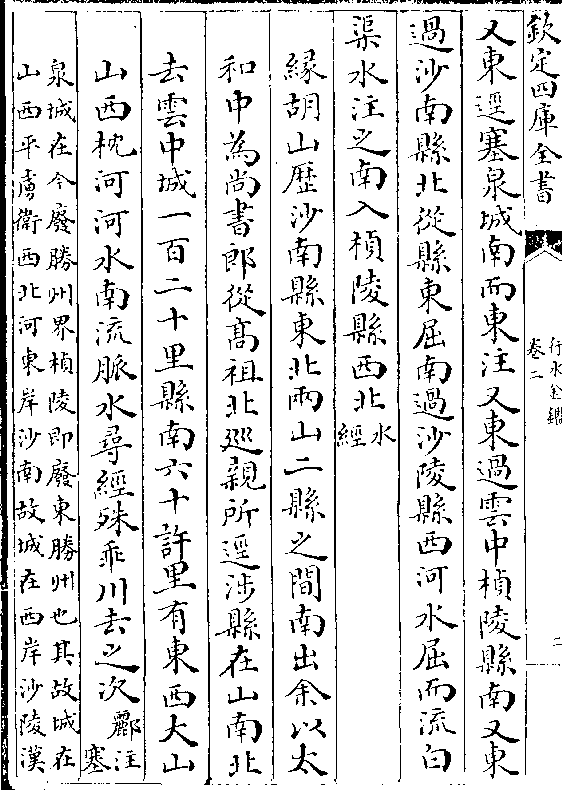 欽定四庫全書
行水金鑑
卷二
二
又東逕塞泉城南而東注又東過雲中楨陵縣南又東
過沙南縣北從縣東屈南過沙陵縣西河水屈而流白
渠水注之南入楨陵縣西北水經
緣胡山歴沙南縣東北兩山二縣之間南出余以太
和中為尚書郎從髙祖北巡親所逕涉縣在山南北
去雲中城一百二十里縣南六十許里有東西大山
山西枕河河水南流脈水尋經殊乖川去之次酈注塞
泉城在今廢勝州界楨陵即廢東勝州也其故城在
山西平虜衛西北河東岸沙南故城在西岸沙陵漢